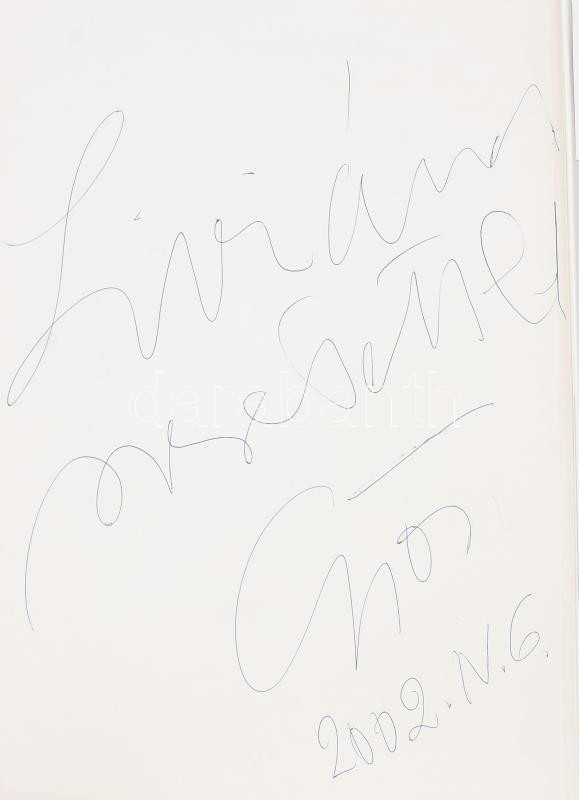 Líviának
szeretettel
2002. IV. 6.
darabanth